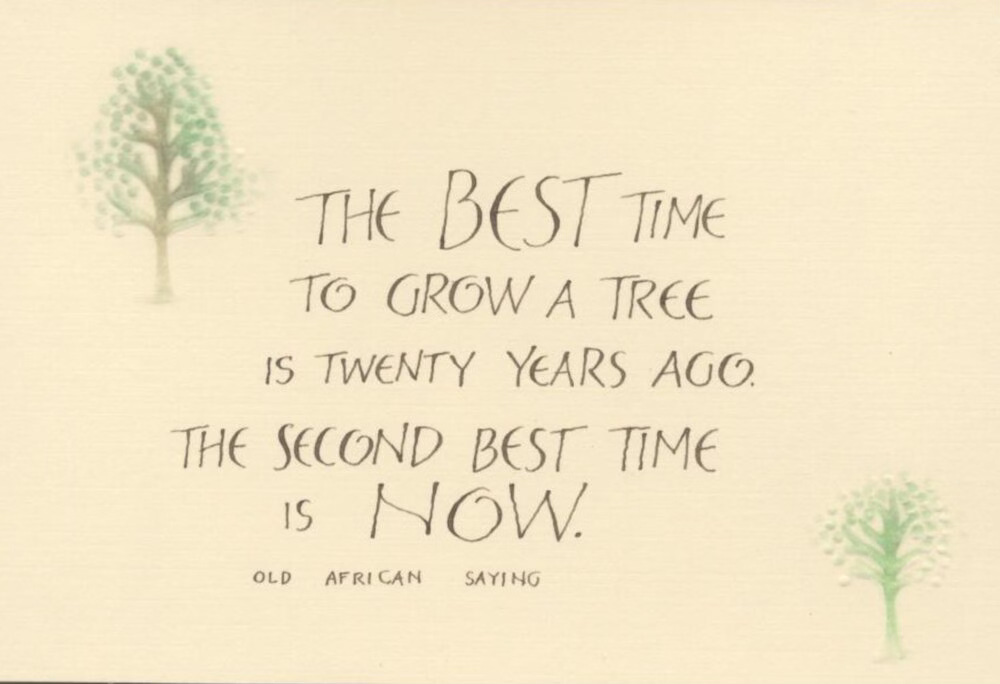 THE BEST TIME
TO GROW A TREE
IS TWENTY YEARS AGO.
THE SECOND BEST TIME
IS NOW.
OLD AFRICAN SAYING